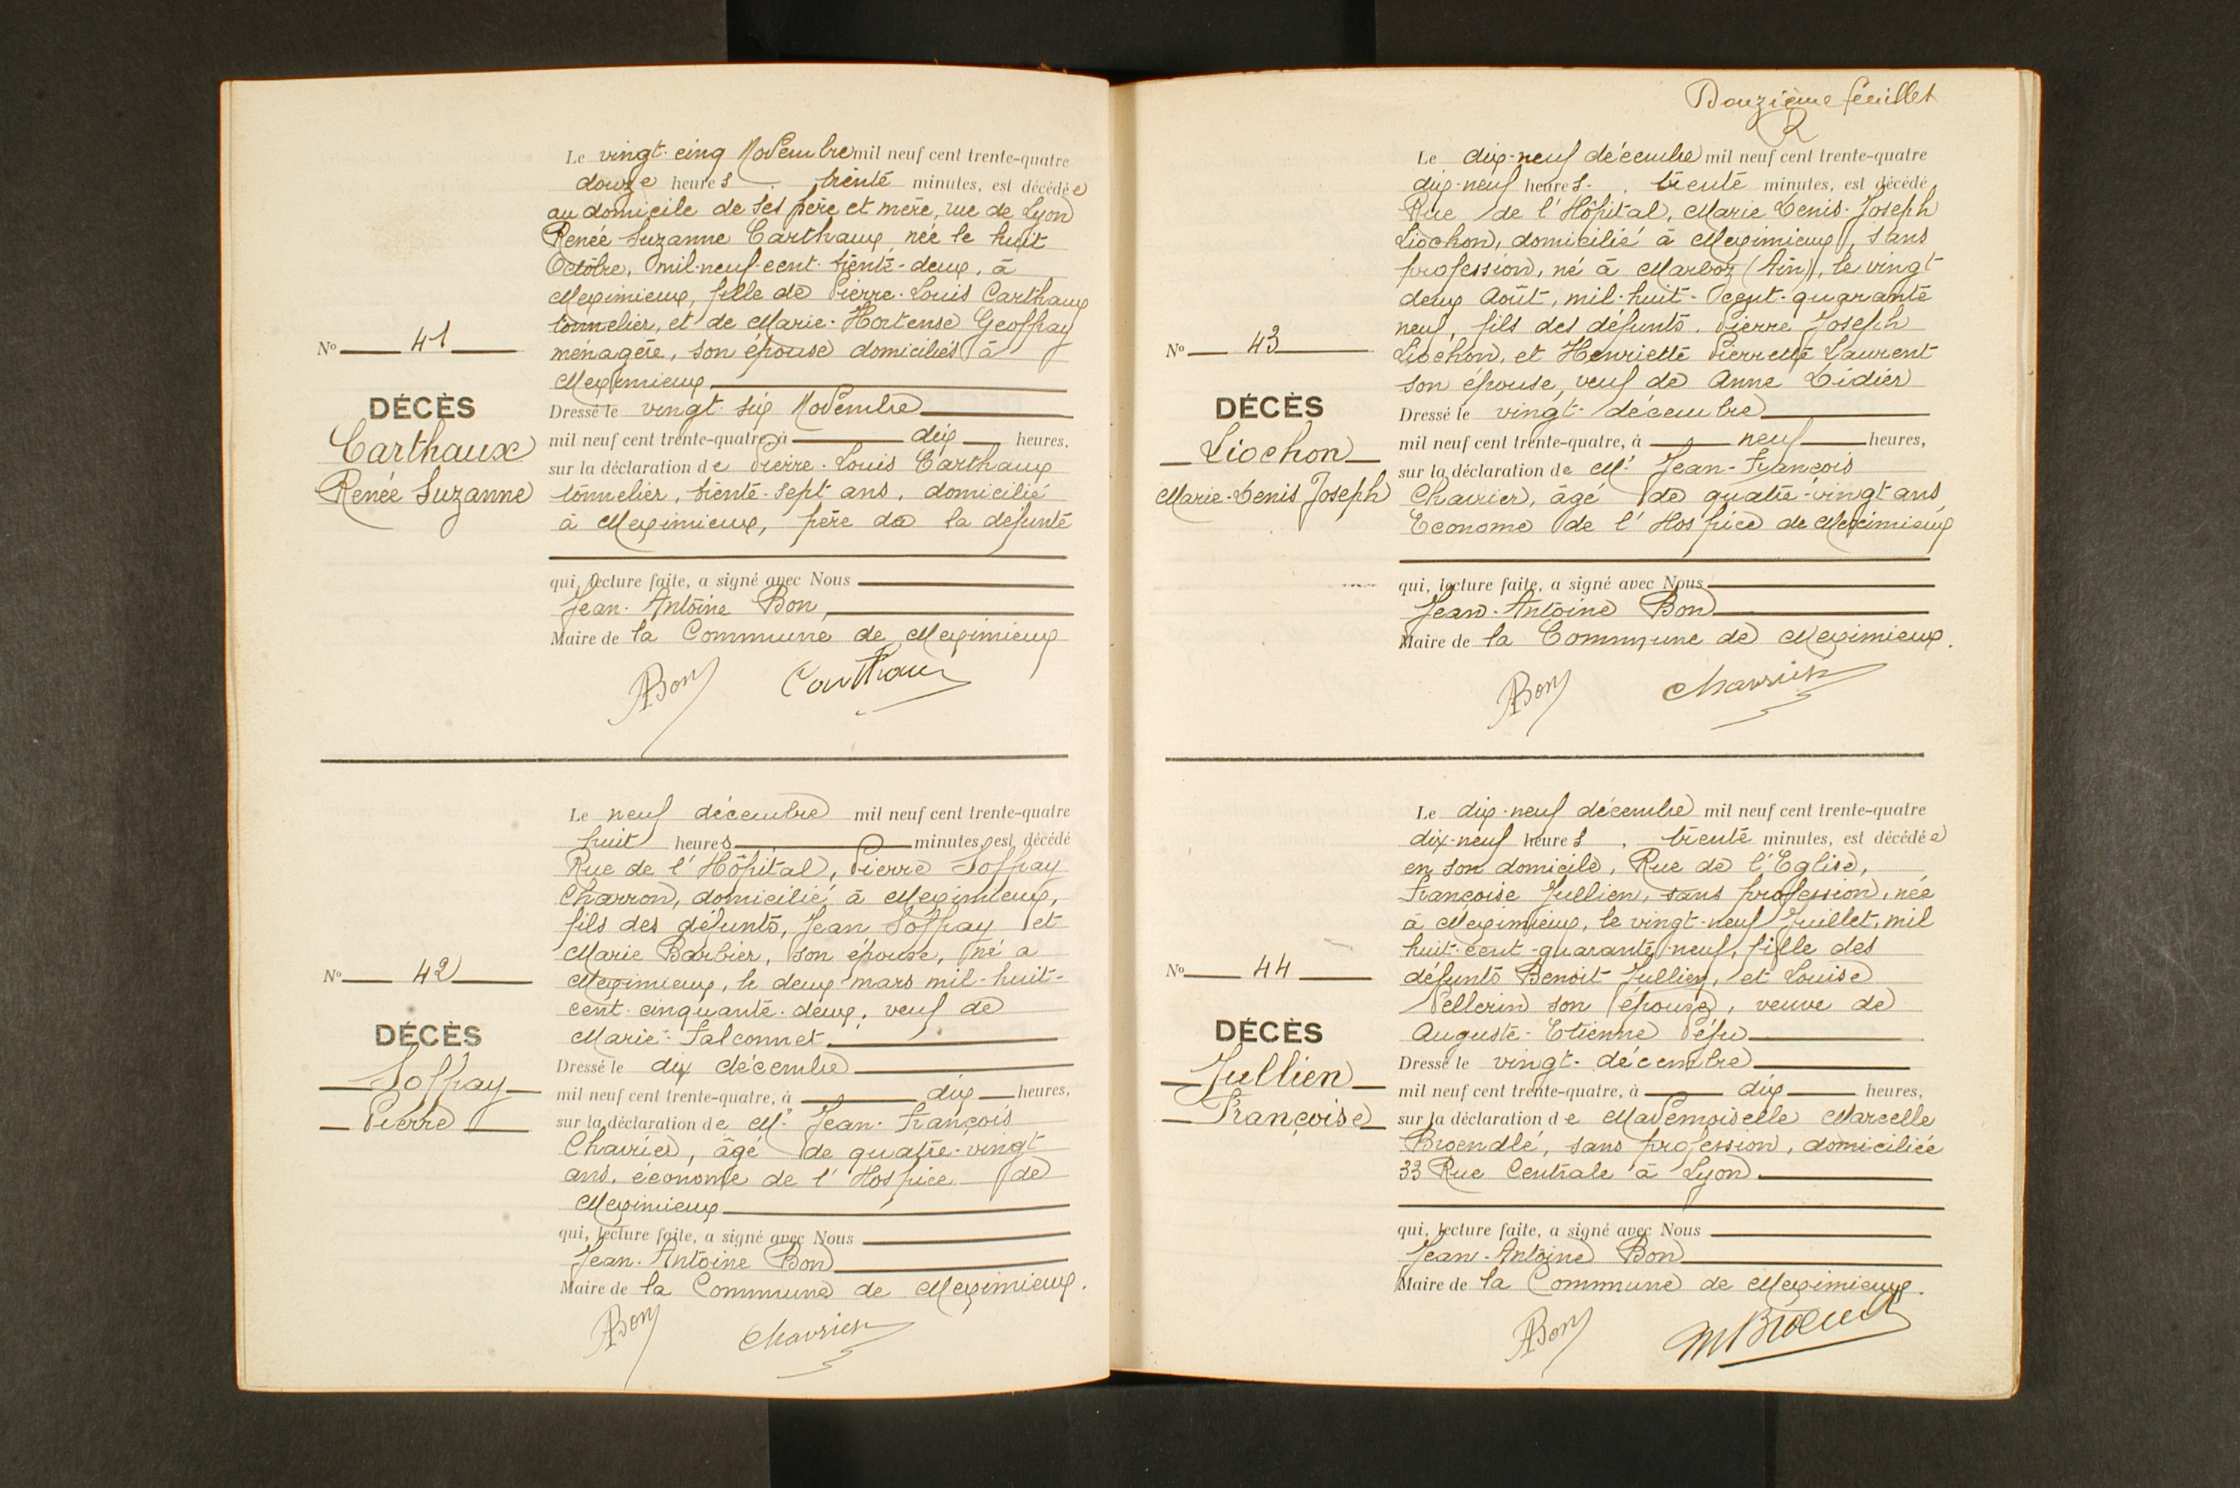 Le vingt-cinq Novembre mil neuf cent trente-quatre
douze heures . trente minutes, est décédée
au domicile de ses père et mère, rue de Lyon
Renée Suzanne Carthaux née le huit
Octobre, mil-neuf-cent-trente-deux, à
Meximieux, fille de Pierre-Louis Carthaux
tonnelier, et de Marie-Hortense Geoffray
ménagère, son épouse domiciliés à
Meximieux
N° 41
DÉCÈS
Carthaux
Renée Suzanne
Dressé le vingt-six Novembre
mil neuf cent trente-quatre, à dix heures,
sur la déclaration de Pierre-Louis Carthaux
tonnelier, trente-sept ans, domicilié
à Meximieux, père de la défunte
qui, lecture faite, a signé avec Nous
Jean-Antoine Bon,
Maire de la Commune de Meximieux
ABon Carthaux
Le neuf décembre mil neuf cent trente-quatre
huit heures minutes, est décédé
Rue de l'Hôpital, Pierre Joffray
Charron, domicilié à Meximieux,
fils des défunts, Jean Joffray et
Marie Barbier, son épouse, né a
Meximieux, le deux mars mil-huit-
cent-cinquante-deux, veuf de
Marie-Falconnet.
N° 42
DÉCÈS
Joffray
Pierre
Dressé le dix décembre
mil neuf cent trente-quatre, à dix heures,
sur la déclaration de Mr Jean-François
Chavrier, âgé de quatre-vingt
ans, économe de l'Hospice de
Meximieux
qui, lecture faite, a signé avec Nous
Jean-Antoine Bon
Maire de la Commune de Meximieux.
ABon Chavrier
Douzième feuillet
Le dix-neuf décembre mil neuf cent trente-quatre
dix-neuf heures . trente minutes, est décédé
Rue de l'Hôpital, Marie Denis-Joseph
Liochon, domicilié à Meximieux, sans
profession, né à Marboz (Ain), le vingt
deux Août, mil-huit-cent-quarante
neuf, fils des défunts. Pierre Joseph
Liochon, et Henriette Pierrette Laurent
son épouse, veuf de Anne Didier
N° 43
DÉCÈS
Liochon
Marie-Denis Joseph
Dressé le vingt-décembre
mil neuf cent trente-quatre, à neuf heures,
sur la déclaration de Mr Jean-François
Chavrier, âgé de quatre-vingt ans
Econome de l'Hospice de Meximieux
qui, lecture faite, a signé avec Nous
Jean-Antoine Bon
Maire de la Commune de Meximieux.
ABon Chavrier
Le dix-neuf décembre mil neuf cent trente-quatre
dix-neuf heures , trente minutes, est décédée
en son domicile, Rue de l'Eglise,
Françoise Jullien, sans profession, née
à Meximieux, le vingt-neuf Juillet, mil
huit-cent-quarante-neuf, fille des
défunts Benoit Jullien, et Louise
Pellerin son épouse, veuve de
Auguste-Etienne Péfu
N° 44
DÉCÈS
Jullien
Françoise
Dressé le vingt-décembre
mil neuf cent trente-quatre, à dix heures,
sur la déclaration de Mademoiselle Marcelle
Broendlé, sans profession, domiciliée
33 Rue Centrale à Lyon
qui, lecture faite, a signé avec Nous
Jean-Antoine Bon
Maire de la Commune de Meximieux.
ABon